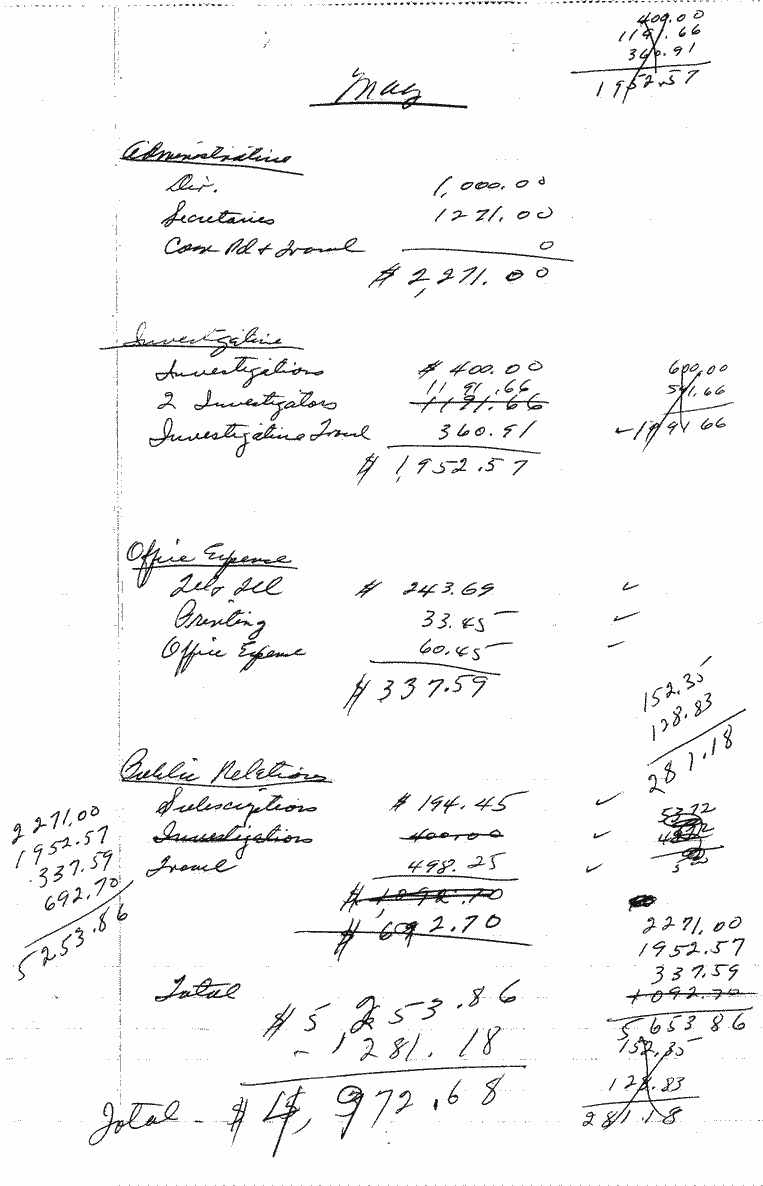 400.00
1191.66
360.91
1952.57
May
Administrative
Dir. 1,000.00
Secretaries 1271.00
Com Pd + Travel 0
$ 2,271.00
Investigative
Investigations $ 400.00 600.00
1191.66 591.66
2 Investigators 1191.66
Investigative Travel 360.91 1191 66
$ 1,952.57
Office Expense
Tel & Tel $ 243.69 ✓
Printing 33.45 ✓
Office Expense 60.45 ✓
$ 337.59
152.35
128.83
281.18
Public Relations
Subscriptions $ 194.45 ✓
Investigations 400.00 ✓
Travel 498.25 ✓
$ 1,092.70
$ 692.70
2271.00
1952.57
337.59
692.70
5253.86
2271.00
1952.57
337.59
1092.70
5653 86
152.35
128.83
281.18
Total $ 5253.86
- 281.18
Total - $ 4,972.68